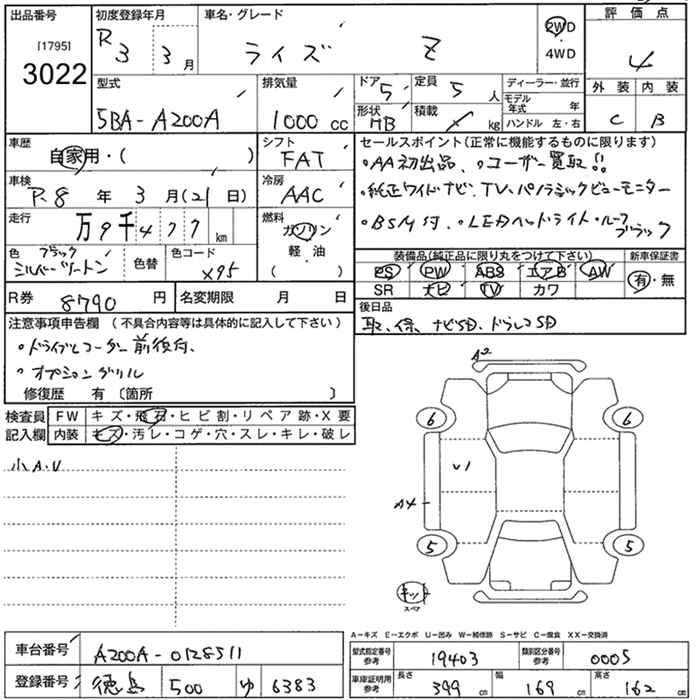 出品番号
[1795]
3022
初度登録年月
R 3 3月
車名・グレード
ライズ Z
2WD
4WD
評価点
4
外装 内装
C B
型式
5BA-A200A
排気量
1000 cc
ドア 5
定員 5 人
形状 HB
積載 kg
ディーラー・並行
モデル年式 年
ハンドル 左・右
車歴
自家用・( )
シフト
FAT
車検
R8 年 3 月(21 日)
冷房
AAC
走行
万9千477 km
燃料
ガソリン
軽・油
( )
色 ブラック
シルバーツートン
色替
色コード
X95
R券 8790 円
名変期限 月 日
セールスポイント(正常に機能するものに限ります)
・AA初出品、・ユーザー買取!!
・純正ワイドナビ、TV、パノラミックビューモニター
・BSM付、・LEDヘッドライト・ルーフ
ブラック
装備品(純正品に限り丸をつけて下さい)
新車保証書
PS PW ABS エアB AW
SR ナビ TV カワ
有・無
後日品
取、保、ナビSD、ドラレコSD
注意事項申告欄 (不具合内容等は具体的に記入して下さい)
・ドライブレコーダー前後付、
・オプショングリル
修復歴 有〔箇所 〕
検査員
記入欄
FW キズ・飛石・ヒビ割・リペア跡・X要
内装 キズ・汚レ・コゲ・穴・スレ・キレ・破レ
小A.U
A2
6
6
U1
A4
5
5
キズ
スペア
A−キズ E−エクボ U−凹み W−補修跡 S−サビ C−腐食 XX−交換済
車台番号 A200A-0128511
登録番号 徳島 500 ゆ 6383
型式指定番号
参考
19403
類別区分番号
参考
0005
車庫証明用
参考
長さ 399 cm
幅 169 cm
高さ 162 cm